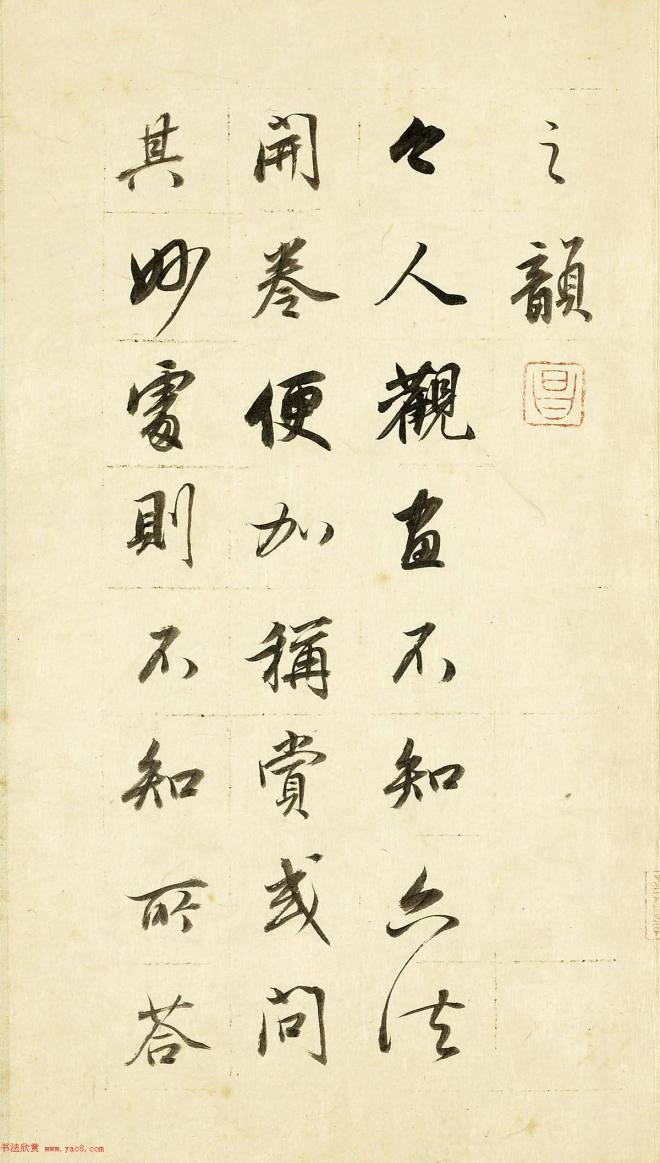 之韻
昌
今人觀畫不知六法
開卷便加稱賞或問
其妙處則不知所荅
书法欣赏 www.yac8.com